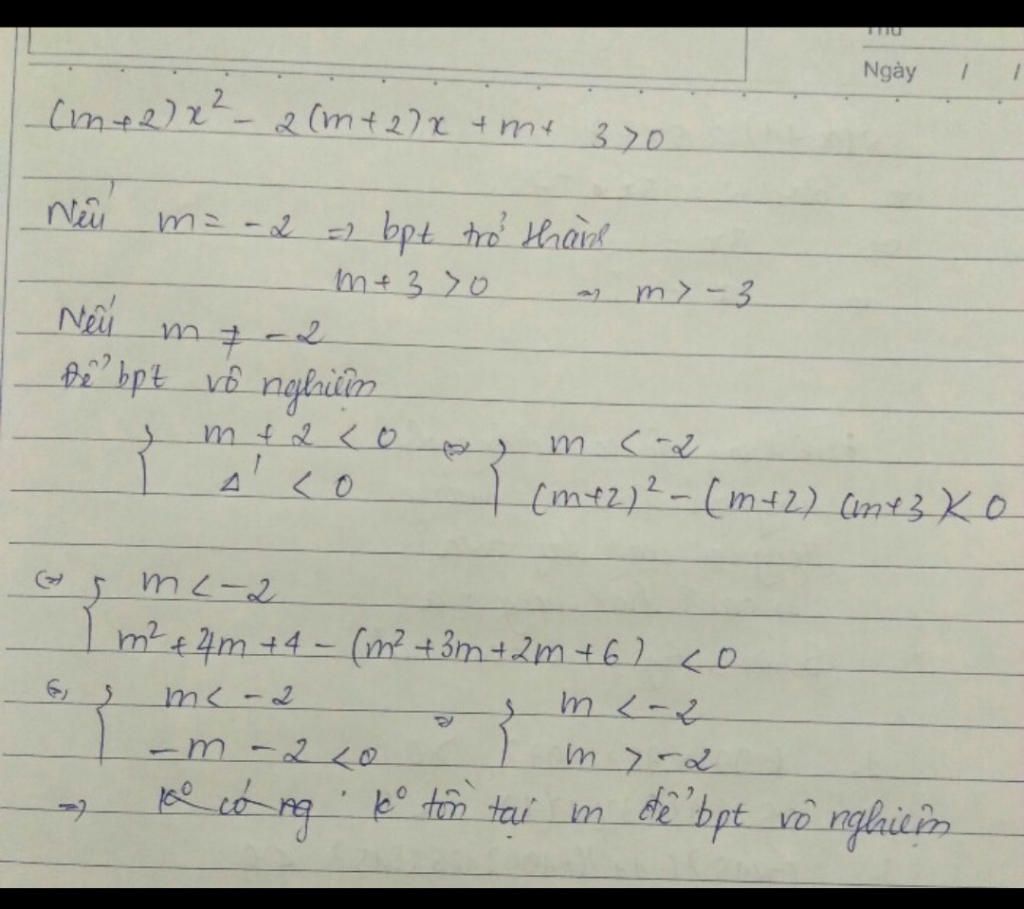 Thứ
Ngày / /
(m+2)x² - 2(m+2)x + m + 3 > 0
Nếu m = -2 => bpt trở thành
m + 3 > 0 => m > -3
Nếu m ≠ -2
Để bpt vô nghiệm
{ m + 2 < 0 <=> { m < -2
Δ' < 0 (m+2)² - (m+2)(m+3) < 0
<=> { m < -2
m² + 4m + 4 - (m² + 3m + 2m + 6) < 0
<=> { m < -2 => { m < -2
-m - 2 < 0 m > -2
=> k° có ng k° tồn tại m để bpt vô nghiệm